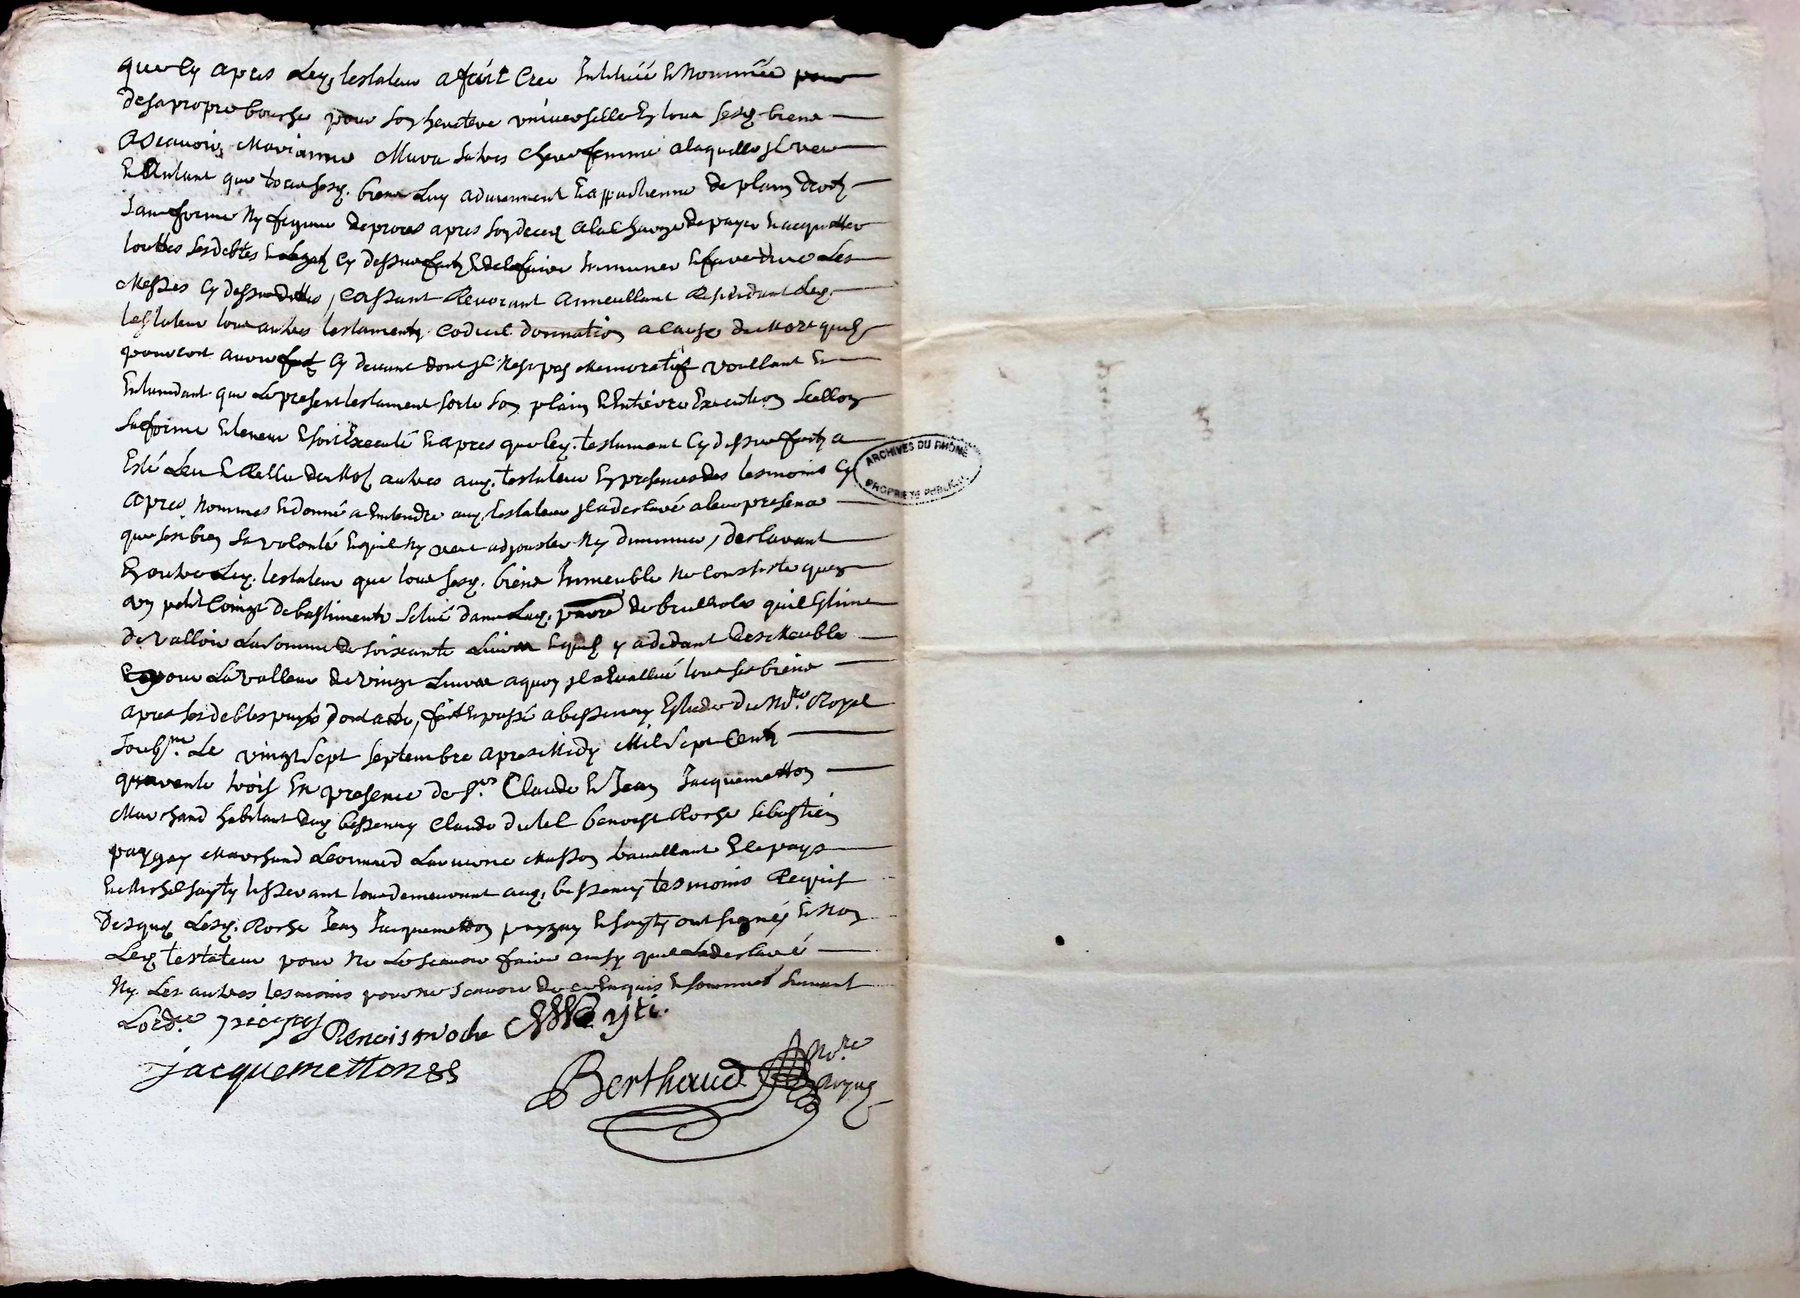 que Cy apres Ledt testateur a fait Cree Instituée & Nommée
de sa propre bouche pour son heretiere universelle En tous sesdt biens
Ascavoir Marianne Mura sa tres chere femme a laquelle jl veu
& Entant que tous sesdt biens Luy adviennent & appartienne de plain droit
sans forme Ny figure de proces apres son deceds a la Charge de payer & acquitter
touttes ses debtes & Legats Cy dessus faits & de faire & faire dire Les
Messes Cy dessus dittes, Cassant Revocant Anneullant Ledt
testateur tous autres testaments Codicil donnation a Cause de Mort quil
pourroit avoir fait Cy devant dont jl Nest pas Memoratif voullant &
Entandant que Le present testament sorte son plain & Entiere Execution scellon
sa forme & teneur & soit Executé & apres que ledt testament Cy dessus fait a
Esté Leu & Rellu de Mot autres audt testateur En presence des tesmoins Cy
apres Nommes & donné a Entendre audt testateur jl a desclaré a leur presence
que sest bien sa volonté & quil Ny veut adjouster Ny diminuer, desclarant
En outre Ledt testateur que tous sesdt biens Immeuble Ne Consiste quen
un petit Coingt de bastiments Situé dans Ladt parre de brullioles quil Estime
de valloir La somme de soixante Livres & quil y a dedant des Meuble
pour La valleur de vingt Livres a quoy jl a Evallué tous ses biens
apres ses debtes payés dont acte, fait & passé a bessenay Estude du Nore Royal
soubsne Le vingt sept septembre apres Midy Mil sept Cents
quarente trois En presence de srs Claude & Jean Jacquemetton
Marchand habitant dudt bessenay Claude dutel benoist Roche sebastien
payzay Marchand Leonnard Lavirone Masson travallant & le pays
& Michel sayty tisserant tous demeurant audt bessenay tesmoins Requis
desquels Lesdt Roche Jean Jacquemetton payzay & sayty ont signés & Non
Ledt testateur pour Ne Le scavoir faire ainsy quil La desclaré
Ny Les autres tesmoins pour ne scavoir de ce Enquis & sommés suivant
Lordce
Benoist roche
jacquemetton
Berthaud Nore
ARCHIVES DU RHÔNE
PROPRIÉTÉ PUBLIQUE